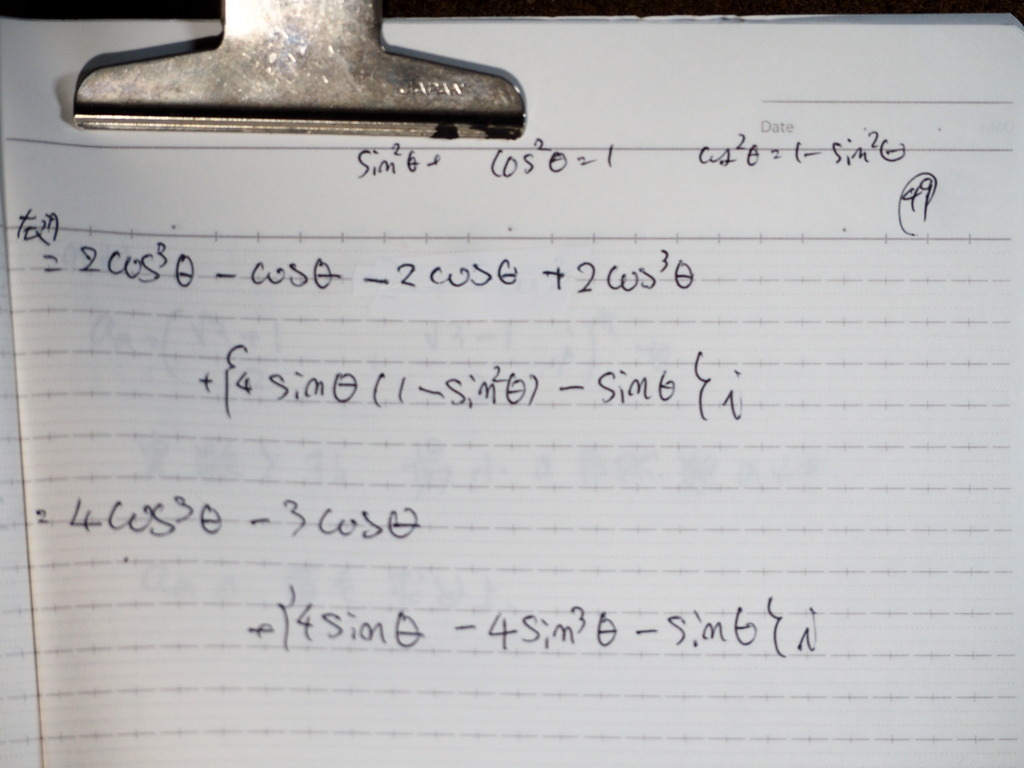 JAPAN
Date
sin²θ + cos²θ = 1 cos²θ = 1 - sin²θ
49
= 2cos³θ - cosθ - 2cosθ + 2cos³θ
+ { 4 sinθ (1 - sin²θ) - sinθ } i
= 4cos³θ - 3cosθ
+ { 4 sinθ - 4 sin³θ - sinθ } i